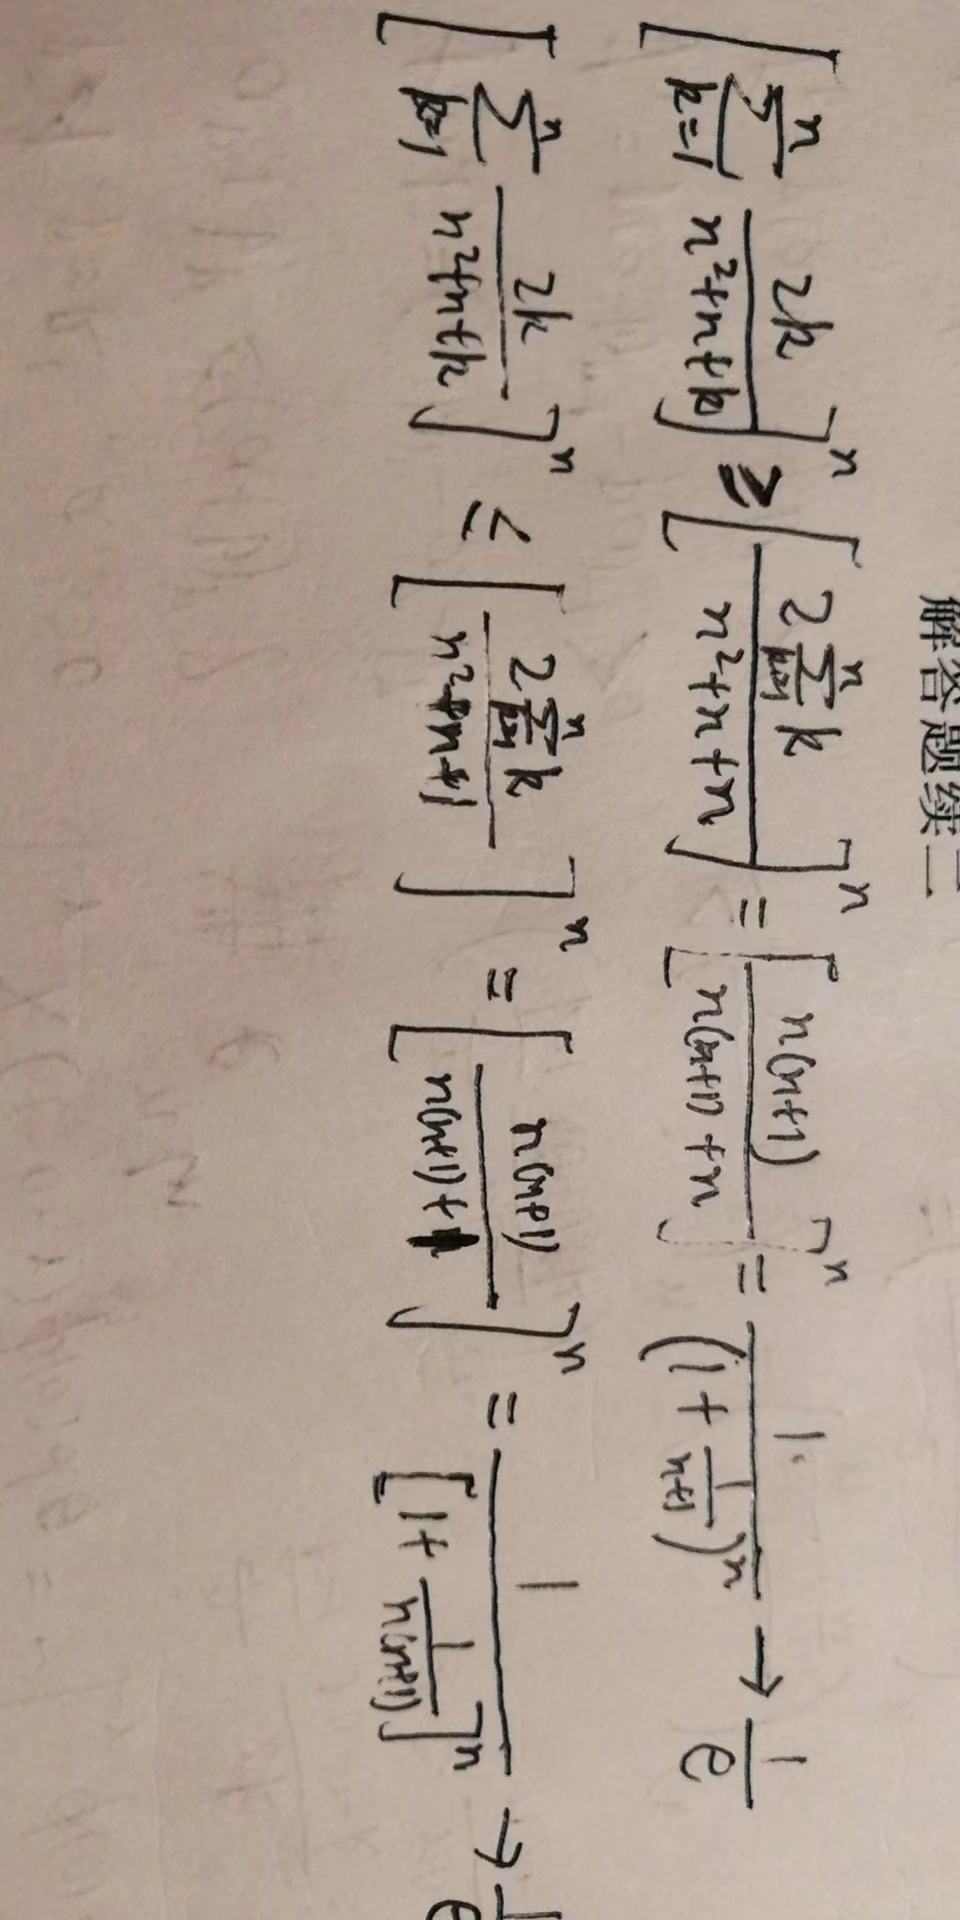 解答题续二
[∑_{k=1}^{n} 2k/(n²+n+k)]^n ≥ [2∑_{k=1}^{n} k/(n²+n+n)]^n = [n(n+1)/(n(n+1)+n)]^n = 1/(1+1/(n+1))^n → 1/e
[∑_{k=1}^{n} 2k/(n²+n+k)]^n ≤ [2∑_{k=1}^{n} k/(n²+n+1)]^n = [n(n+1)/(n(n+1)+1)]^n = 1/[1+1/(n(n+1))]^n → 1/e